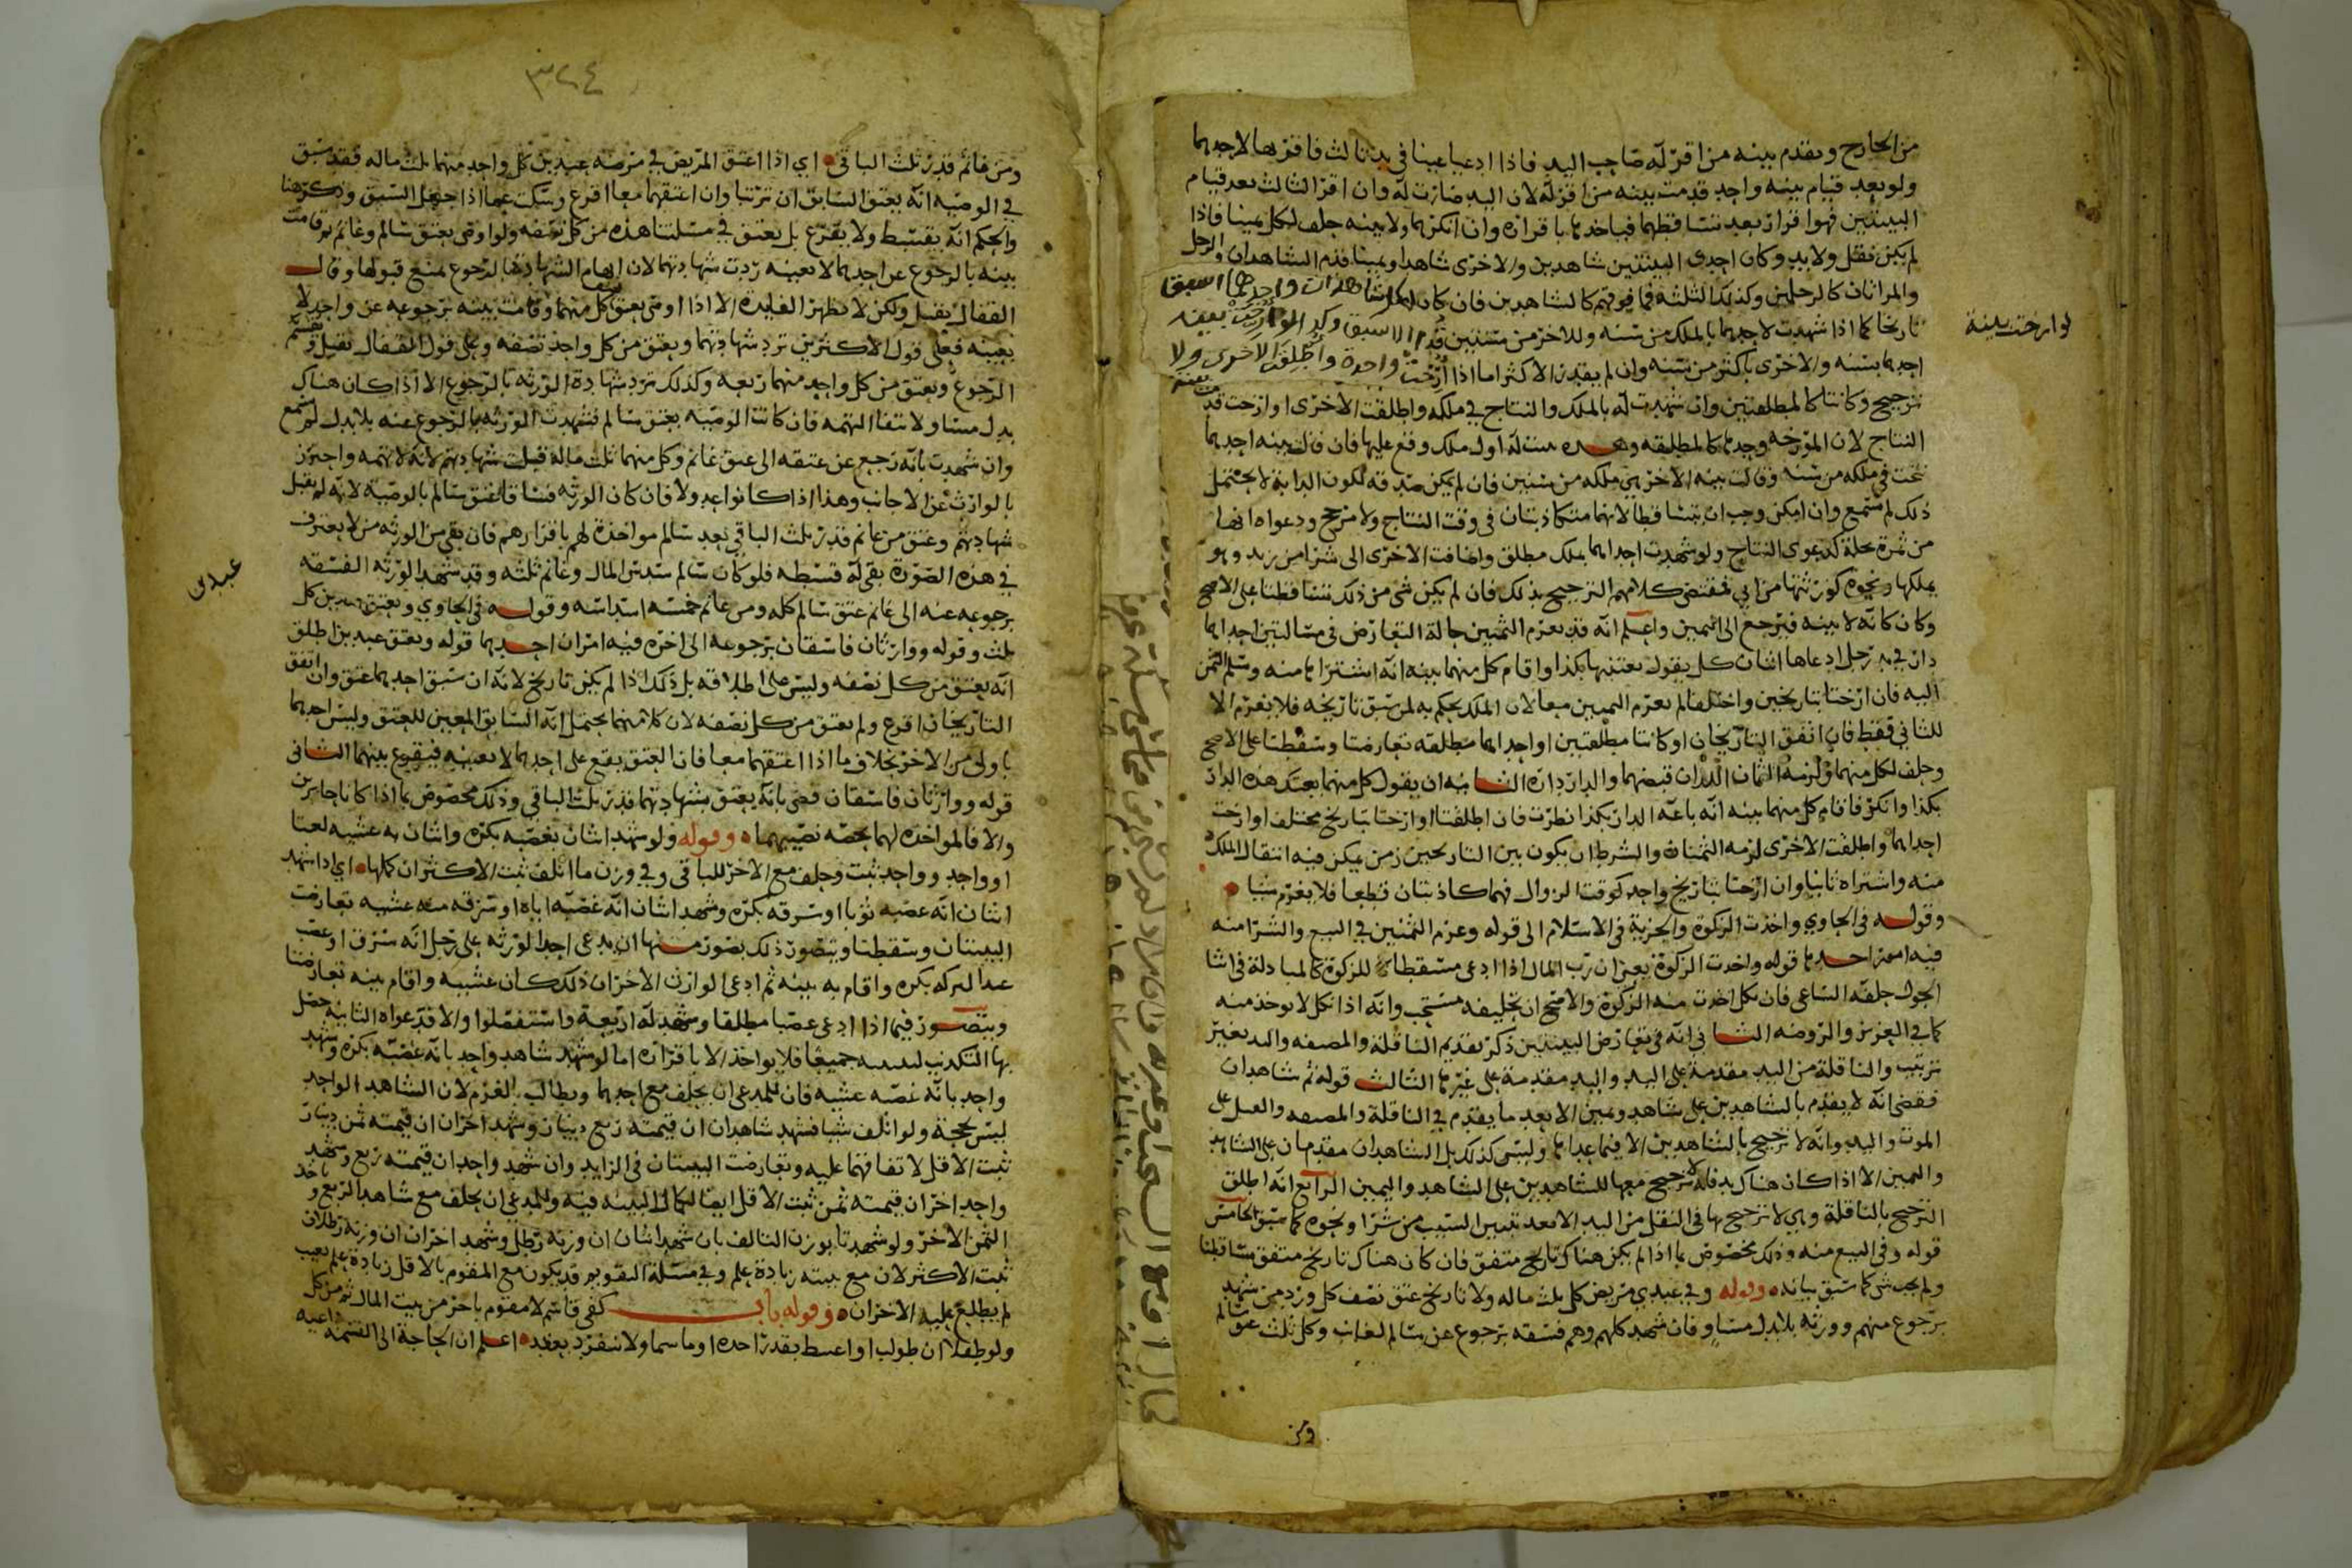 من الخارج ويقدم بينه من اقر له صاحب اليد فاذا ادعيا عينا في يد ثالث فاقر بها لاحدهما
ولو بعد قيام بينه واحد قدمت بينه من اقر له لان اليد صارت له وان اقر الثالث بعد قيام
البينتين فهو اقرار بعد تساقطهما فياخذ بها باقراره وان انكرهما ولا بينه حلف لكل يمينا فاذا
لم يكن نقل ولا يد وكان احدى البينتين شاهدين والاخرى شاهدا ويمينا قدم الشاهدان والرجل
والمراتان كالرجلين وكذلك الثلثه فما فوقهم كالشاهدين فان كان لكل شاهدان واحدهما اسبق
تاريخا كما اذا شهدت لاحدهما بالملك من سنه وللاخر من سنتين قدم الاسبق
احدهما بسنه والاخرى باكثر من سنه وان لم يقدر الاكثر اما اذا ارخت واحدة واطلقت الاخرى ولا
ترجيح وكانتا كالمطلقتين وان شهدت له بالملك والنتاج في ملكه واطلقت الاخرى او ارخت قدمت بينة
النتاج لان المؤرخه وحدها كالمطلقه اول ملك وقع عليها فان قالت بينه احدهما
نتجت في ملكه من سنه وقالت بينه الاخر هي ملكه من سنتين فان لم يمكن صدقه لكون الدابة لا يحتمل
ذلك لم تسمع وان امكن وجب ان يتساقطا لانهما متكاذبتان في وقت النتاج ولا مرجح ودعواه انها
من ثمرة نخلة كدعوى النتاج ولو شهدت احداهما بملك مطلق واضافت الاخرى الى شرا من زيد وهو
يملكها ونحوه كورثتها من ابي فمقتضى كلامهم الترجيح بذلك فان لم يكن شي من ذلك تساقطتا على الاصح
وكان كانه لا بينه فيرجع الى اليمين واعلم انه قد يغرم الثمنين حالة التعارض في مسالتين احداهما
دار في يد رجل ادعاها اثنان كل يقول بعتنيها بكذا واقام كل منهما بينه انه اشتراها منه وسلم الثمن
اليه فان ارختا بتاريخين واختلفا لم يغرم الثمنين معا لان الملك يحكم به لمن سبق تاريخه فلا يغرم الا
للثاني فقط فان اتفق التاريخان او كانتا مطلقتين او احداهما مطلقه تعارضتا وسقطتا على الاصح
وحلف لكل منهما ولزمه الثمنان اللذان قبضهما والدار داره الثانيه ان يقول كل منهما بعتك هذه الدار
بكذا وانكر فاقام كل منهما بينه انه باعه الدار بكذا نظرت فان اطلقتا او ارختا بتاريخ مختلف او ارخت
احداهما واطلقت الاخرى لزمه الثمنان والشرط ان يكون بين التاريخين زمن يمكن فيه انتقال الملك
منه واشتراه ثانيا وان ارختا بتاريخ واحد كوقت الزوال فهما كاذبتان قطعا فلا يغرم شيا
وقوله في الحاوي واخذت الزكوة والجزية في الاسلام الى قوله وغرم الثمنين في البيع والشرا منه
فيه امور احدها قوله واخذت الزكوة يعني ان رب المال اذا ادعى مسقطا للزكوة كالمبادلة في اثنا
الحول حلفه الساعي فان نكل اخذت منه الزكوة والاصح ان تحليفه مستحب وانه اذا نكل لا يوخذ منه
كما في العزيز والروضه الثاني انه في تعارض البينتين ذكر تقديم الناقلة والمضيفه واليد بغير
ترتيب والناقلة من اليد مقدمة على اليد واليد مقدمة على غيرها الثالث قوله ثم شاهدان
فقضى انه لا يقدم بالشاهدين على شاهد ويمين الا بعد ما يقدم في الناقلة والمضيفه على
الموت واليد وانه لا ترجيح بالشاهدين الا فيما عداها وليس كذلك بل الشاهدان مقدمان على الشاهد
واليمين الا اذا كان هناك يد فانه لا ترجيح معها للشاهدين على الشاهد واليمين الرابع انه اطلق
الترجيح بالناقلة وهي لا ترجيح بها في النقل من اليد الا بعد تبيين السبب من شرا ونحوه كما سبق الخامس
قوله وفي البيع منه وذلك مخصوص بما اذا لم يكن هناك تاريخ متفق فان كان هناك تاريخ متفق تساقطتا
ولم يجب شي كما سبق بيانه وقوله وفي عبدي مريض كل ثلث ماله ولا تاريخ عتق نصف كل ورد من شهد
برجوع منهم وورثه بلا بدل مساو فان شهد كلهم وهم فسقه برجوع عن سالم لغانم وكل ثلث عتق سالم
ومن
لو ارخت بينة
٣٢٤
ومن غانم قدر ثلث الباقي اي اذا اعتق المريض في مرضه عبدين كل واحد منهما ثلث ماله فقد سبق
في الوصيه انه يعتق السابق ان ترتبا وان اعتقهما معا اقرع وسكت عما اذا جهل السبق وذكره هنا
والحكم انه يقسط ولا يقرع بل يعتق في مسئلتنا هذه من كل نصفه ولو اوصى بعتق سالم وغانم ثم قامت
بينه بالرجوع عن احدهما لا بعينه ردت شهادتهما لان ابهام الشهادة بالرجوع يمنع قبولها وقال
القفال يقبل ولكن لا تظهر الفايدة الا اذا اوصى بعتق كل منهما وقامت بينه برجوعه عن واحد لا
بعينه فعلى قول الاكثرين ترد شهادتهما ويعتق من كل واحد نصفه وعلى قول القفال تقبل
الرجوع ويعتق من كل واحد منهما ربعه وكذلك ترد شهادة الورثه بالرجوع الا اذا كان هناك
بدل مساو لانتفا التهمه فان كانت الوصيه بعتق سالم فشهدت الورثه بالرجوع عنه بلا بدل لم تسمع
وان شهدت بانه رجع عن عتقه الى عتق غانم وكل منهما ثلث ماله قبلت شهادتهم لانه لا تهمه واحترز
بالوارث عن الاجانب وهذا اذا كانوا عدولا فان كان الورثه فساقا عتق سالم بالوصيه لانه لم يقبل
شهادتهم وعتق من غانم قدر ثلث الباقي بعد سالم مواخذة لهم باقرارهم فان بقي من الورثه من لا يعترف
في هذه الصورة بقي له قسطه فلو كان سالم سدس المال وغانم ثلثه وقد شهد الورثه الفسقه
برجوعه عنه الى غانم عتق سالم كله ومن غانم خمسه اسداسه وقوله في الحاوي ويعتق عبدين كل
ثلث وقوله ووارثان فاسقان برجوعه الى اخره فيه امران احدهما قوله ويعتق عبدين اطلق
انه يعتق من كل نصفه وليس على اطلاقه بل ذلك اذا لم يكن تاريخ لانه ان سبق احدهما عتق وان اتفق
التاريخان اقرع ولم يعتق من كل نصفه لان كلا منهما يحتمل انه السابق المعين للعتق وليس احدهما
باولى من الاخر بخلاف ما اذا اعتقهما معا فان العتق يقع على احدهما لا بعينه فيقرع بينهما الثاني
قوله ووارثان فاسقان قضى بانه يعتق بشهادتهما قدر ثلث الباقي وذلك مخصوص بما اذا كانا حايزين
والا فالمواخذه لهما بحصه نصيبهما وقوله ولو شهد اثنان بغصبه بكرة واثنان به عشيه لغتا
او واحد وواحد ثبت وحلف مع الاخر للباقي وفي وزن ما اتلف ثبت الاكثر ان كملها اي اذا شهد
اثنان انه غصبه ثوبا او سرقه بكرة وشهد اثنان انه غصبه اياه او سرقه منه عشيه تعارضت
البينتان وسقطتا ويتصور ذلك بصور منها ان يدعي احد الورثه على رجل انه سرق او غصب
عبد التركه بكره واقام به بينه ثم ادعى الوارث الاخر ان ذلك كان عشيه واقام بينه تعارضتا
ويتصور فيما اذا ادعى غصبا مطلقا وشهد له اربعة واستفصلوا والا فدعواه الثانيه حصل
بها التكذيب جميعا فلا يواخذ الا باقراره اما لو شهد شاهد واحد بانه غصبه بكرة وشهد
واحد بانه غصبه عشيه فان للمدعي ان يحلف مع احدهما ويطالب الغرم لان الشاهد الواحد
ليس بحجة ولو اتلف شيا فشهد شاهدان ان قيمته ربع دينار وشهد اخران ان قيمته ثمن دينار
ثبت الاقل لاتفاقهما عليه وتعارضت البينتان في الزايد وان شهد واحد ان قيمته ربع وشهد
واحد اخر ان قيمته ثمن ثبت الاقل ايضا لكمال البينه فيه وللمدعي ان يحلف مع شاهد الربع وياخذ
الثمن الاخر ولو شهدتا بوزن التالف بان شهد اثنان ان وزنه رطل وشهد اخران ان وزنه رطلان
ثبت الاكثر لان مع بينته زيادة علم وفي مسئلة التقويم قد يكون مع المقوم بالاقل زيادة علم بعيب
لم يطلع عليه الاخران وقوله باب كفى قاسم لا مقوم باجر من بيت المال ثم من كل
ولو طفلا ان طولب او اغتبط بقدر اخذه ولا ينفرد بعقد اعلم ان الحاجة الى القسمة داعيه
عبدين